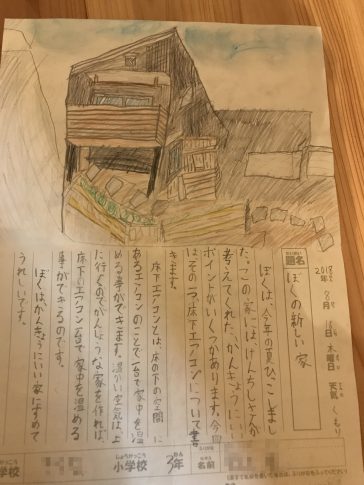 題名
ぼくの新しい家
2018年 8月 16日 木曜日 天気 くもり
ぼくは、今年の夏ひっこしまし
た。この家には、けんちくしさんが
考えてくれた、かんきょうにいい
ポイントがいくつかあります。今回
はその一つ、床下エアコンについて書
きます。
床下エアコンとは、床の下の空間に
あるエアコンのことで一台で家中を温
める事ができます。温かい空気は上
に行くのでがんじょうな家を作れば、
床下エアコン一台で家中を温める
事ができるのです。
ぼくは、かんきょうにいい家にすめて
うれしいです。
小学校 3年 名前